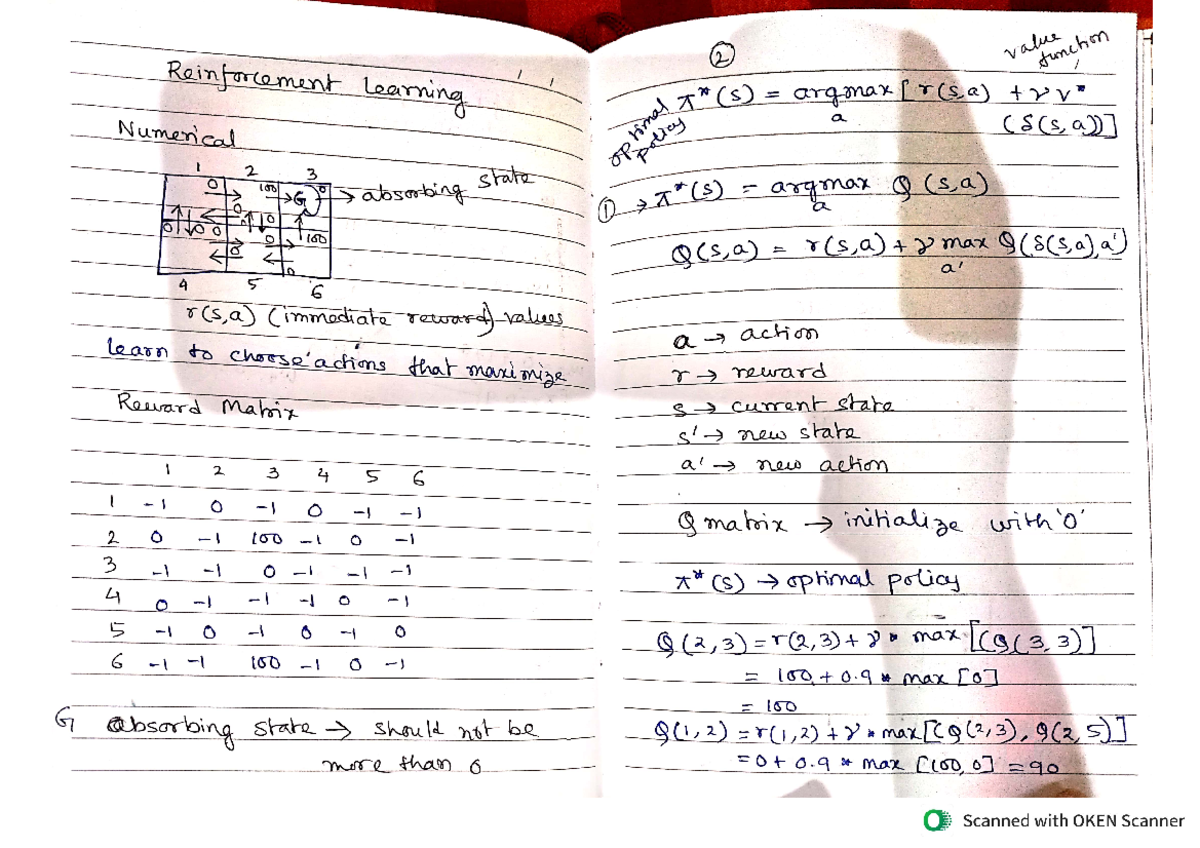 Reinforcement Learning
Numerical
1 2 3
0 100 G 0 → absorbing state
0 0
0 0 0 0 0 100
0
0
4 5 6
r(s,a) (immediate reward) values
learn to choose actions that maximize
Reward Matrix
1 2 3 4 5 6
1 -1 0 -1 0 -1 -1
2 0 -1 100 -1 0 -1
3 -1 -1 0 -1 -1 -1
4 0 -1 -1 -1 0 -1
5 -1 0 -1 0 -1 0
6 -1 -1 100 -1 0 -1
G absorbing state → should not be
more than 0
②
value function
optimal policy π*(s) = argmax [r(s,a) + γ V*
a (δ(s,a))]
① → π*(s) = argmax Q (s,a)
a
Q(s,a) = r(s,a) + γ max Q(δ(s,a),a')
a'
a → action
r → reward
s → current state
s' → new state
a' → new action
Q matrix → initialize with '0'
π*(s) → optimal policy
Q(2,3) = r(2,3) + γ * max [(Q(3,3)]
= 100 + 0.9 * max [0]
= 100
Q(1,2) = r(1,2) + γ * max [(Q(2,3), Q(2,5)]
= 0 + 0.9 * max [100, 0] = 90
Scanned with OKEN Scanner